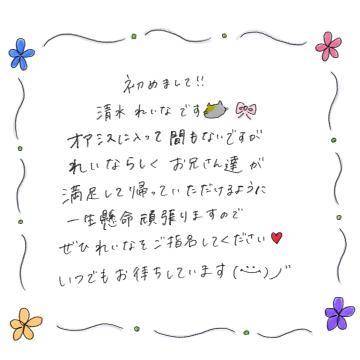 初めまして!!
清水 れいな です
オアシスに入って 間もないですが
れいならしく お兄さん達 が
満足して帰っていただけるように
一生懸命頑張りますので
ぜひれいなをご指名してください♥
いつでもお待ちしています(︶‿︶)ノ